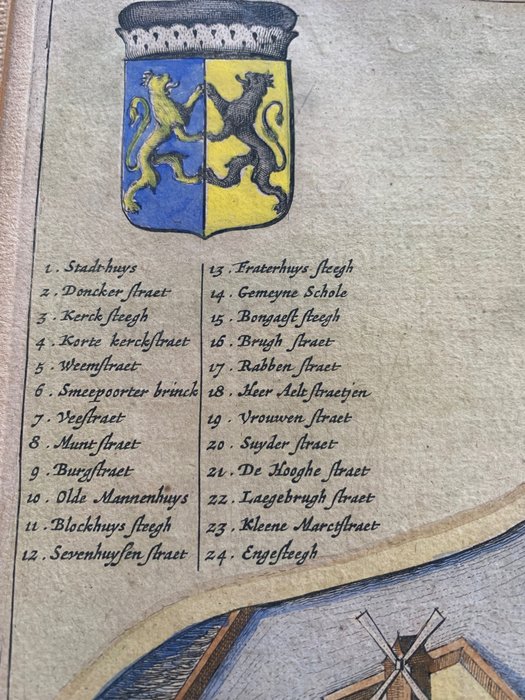 1. Stadthuys
2. Doncker straet
3. Kerck steegh
4. Korte kerckstraet
5. Weemstraet
6. Smeepoorter brinck
7. Veestraet
8. Munt straet
9. Burgstraet
10. Olde Mannenhuys
11. Blockhuys steegh
12. Sevenhuysen straet
13. Fraterhuys steegh
14. Gemeyne Schole
15. Bongaest steegh
16. Brugh straet
17. Rabben straet
18. Heer Aelt straetjen
19. Vrouwen straet
20. Suyder straet
21. De Hooghe straet
22. Laegebrugh straet
23. Kleene Marctstraet
24. Engesteegh